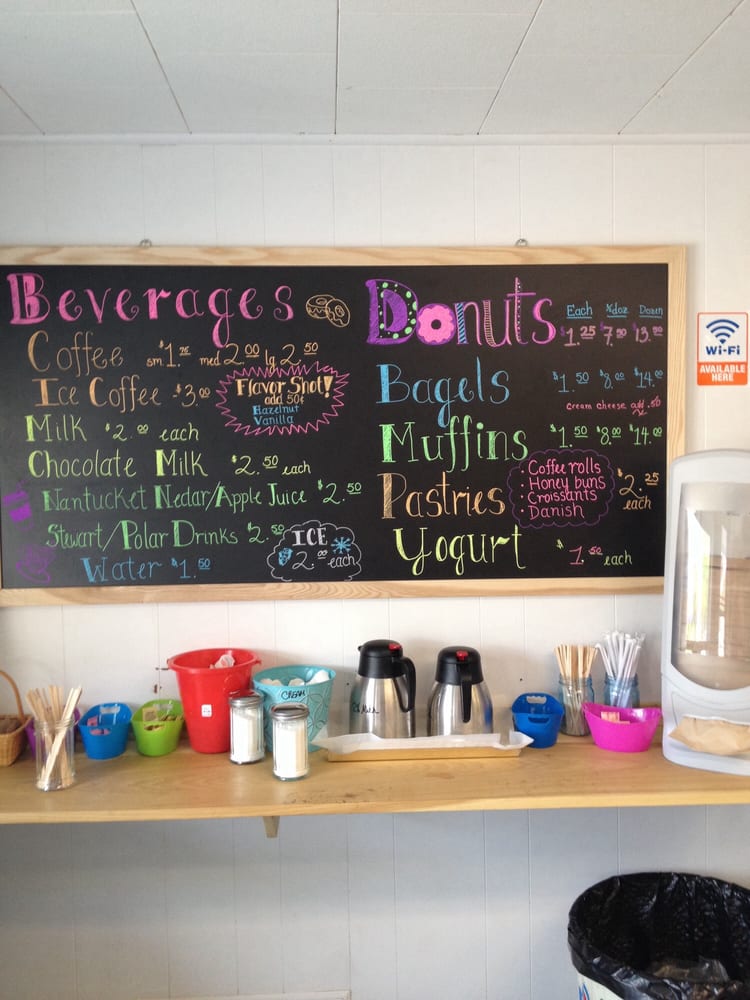 Beverages
Coffee sm $1.75 med 2.00 lg 2.50
Ice Coffee $3.00
Flavor Shot!
add 50¢
Hazelnut
Vanilla
Milk $2.00 each
Chocolate Milk $2.50 each
Nantucket Nectar/Apple Juice $2.50
Stewart/Polar Drinks $2.50
Water $1.50
ICE
$2.00 each
Donuts
Each ½doz Dozen
$1.25 $7.50 $13.00
Bagels $1.50 $8.00 $14.00
cream cheese add .50
Muffins $1.50 $8.00 $14.00
Pastries
• Coffee rolls
• Honey buns
• Croissants
• Danish
$2.25 each
Yogurt $1.50 each
Wi-Fi
AVAILABLE
HERE
CREAM
Milk